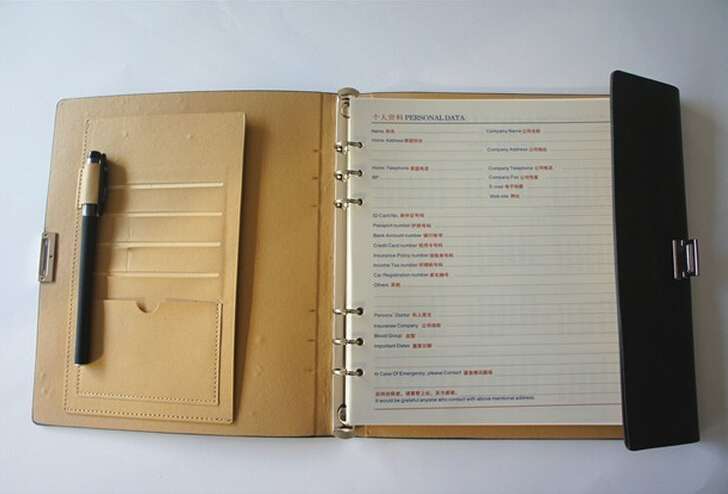 个人资料 PERSONAL DATA
Name 姓名
Company Name 公司名称
Home Address 家庭住址
Company Address 公司地址
Home Telephone 家庭电话
Company Telephone 公司电话
BP
Company Fax 公司传真
E-mail 电子邮箱
Web-site 网址
ID Card No. 身份证号码
Passport number 护照号码
Bank Account number 银行帐号
Credit Card number 信用卡号码
Insurance Policy number 保险单号码
Income Tax number 所得税号码
Car Registration number 驾车牌号
Others 其他
Persons' Doctor 私人医生
Insurance Company 公司保险
Blood Group 血型
Important Dates 重要日期
In Case Of Emergency, please Contact
It would be grateful anyone who contact with above mentional address.